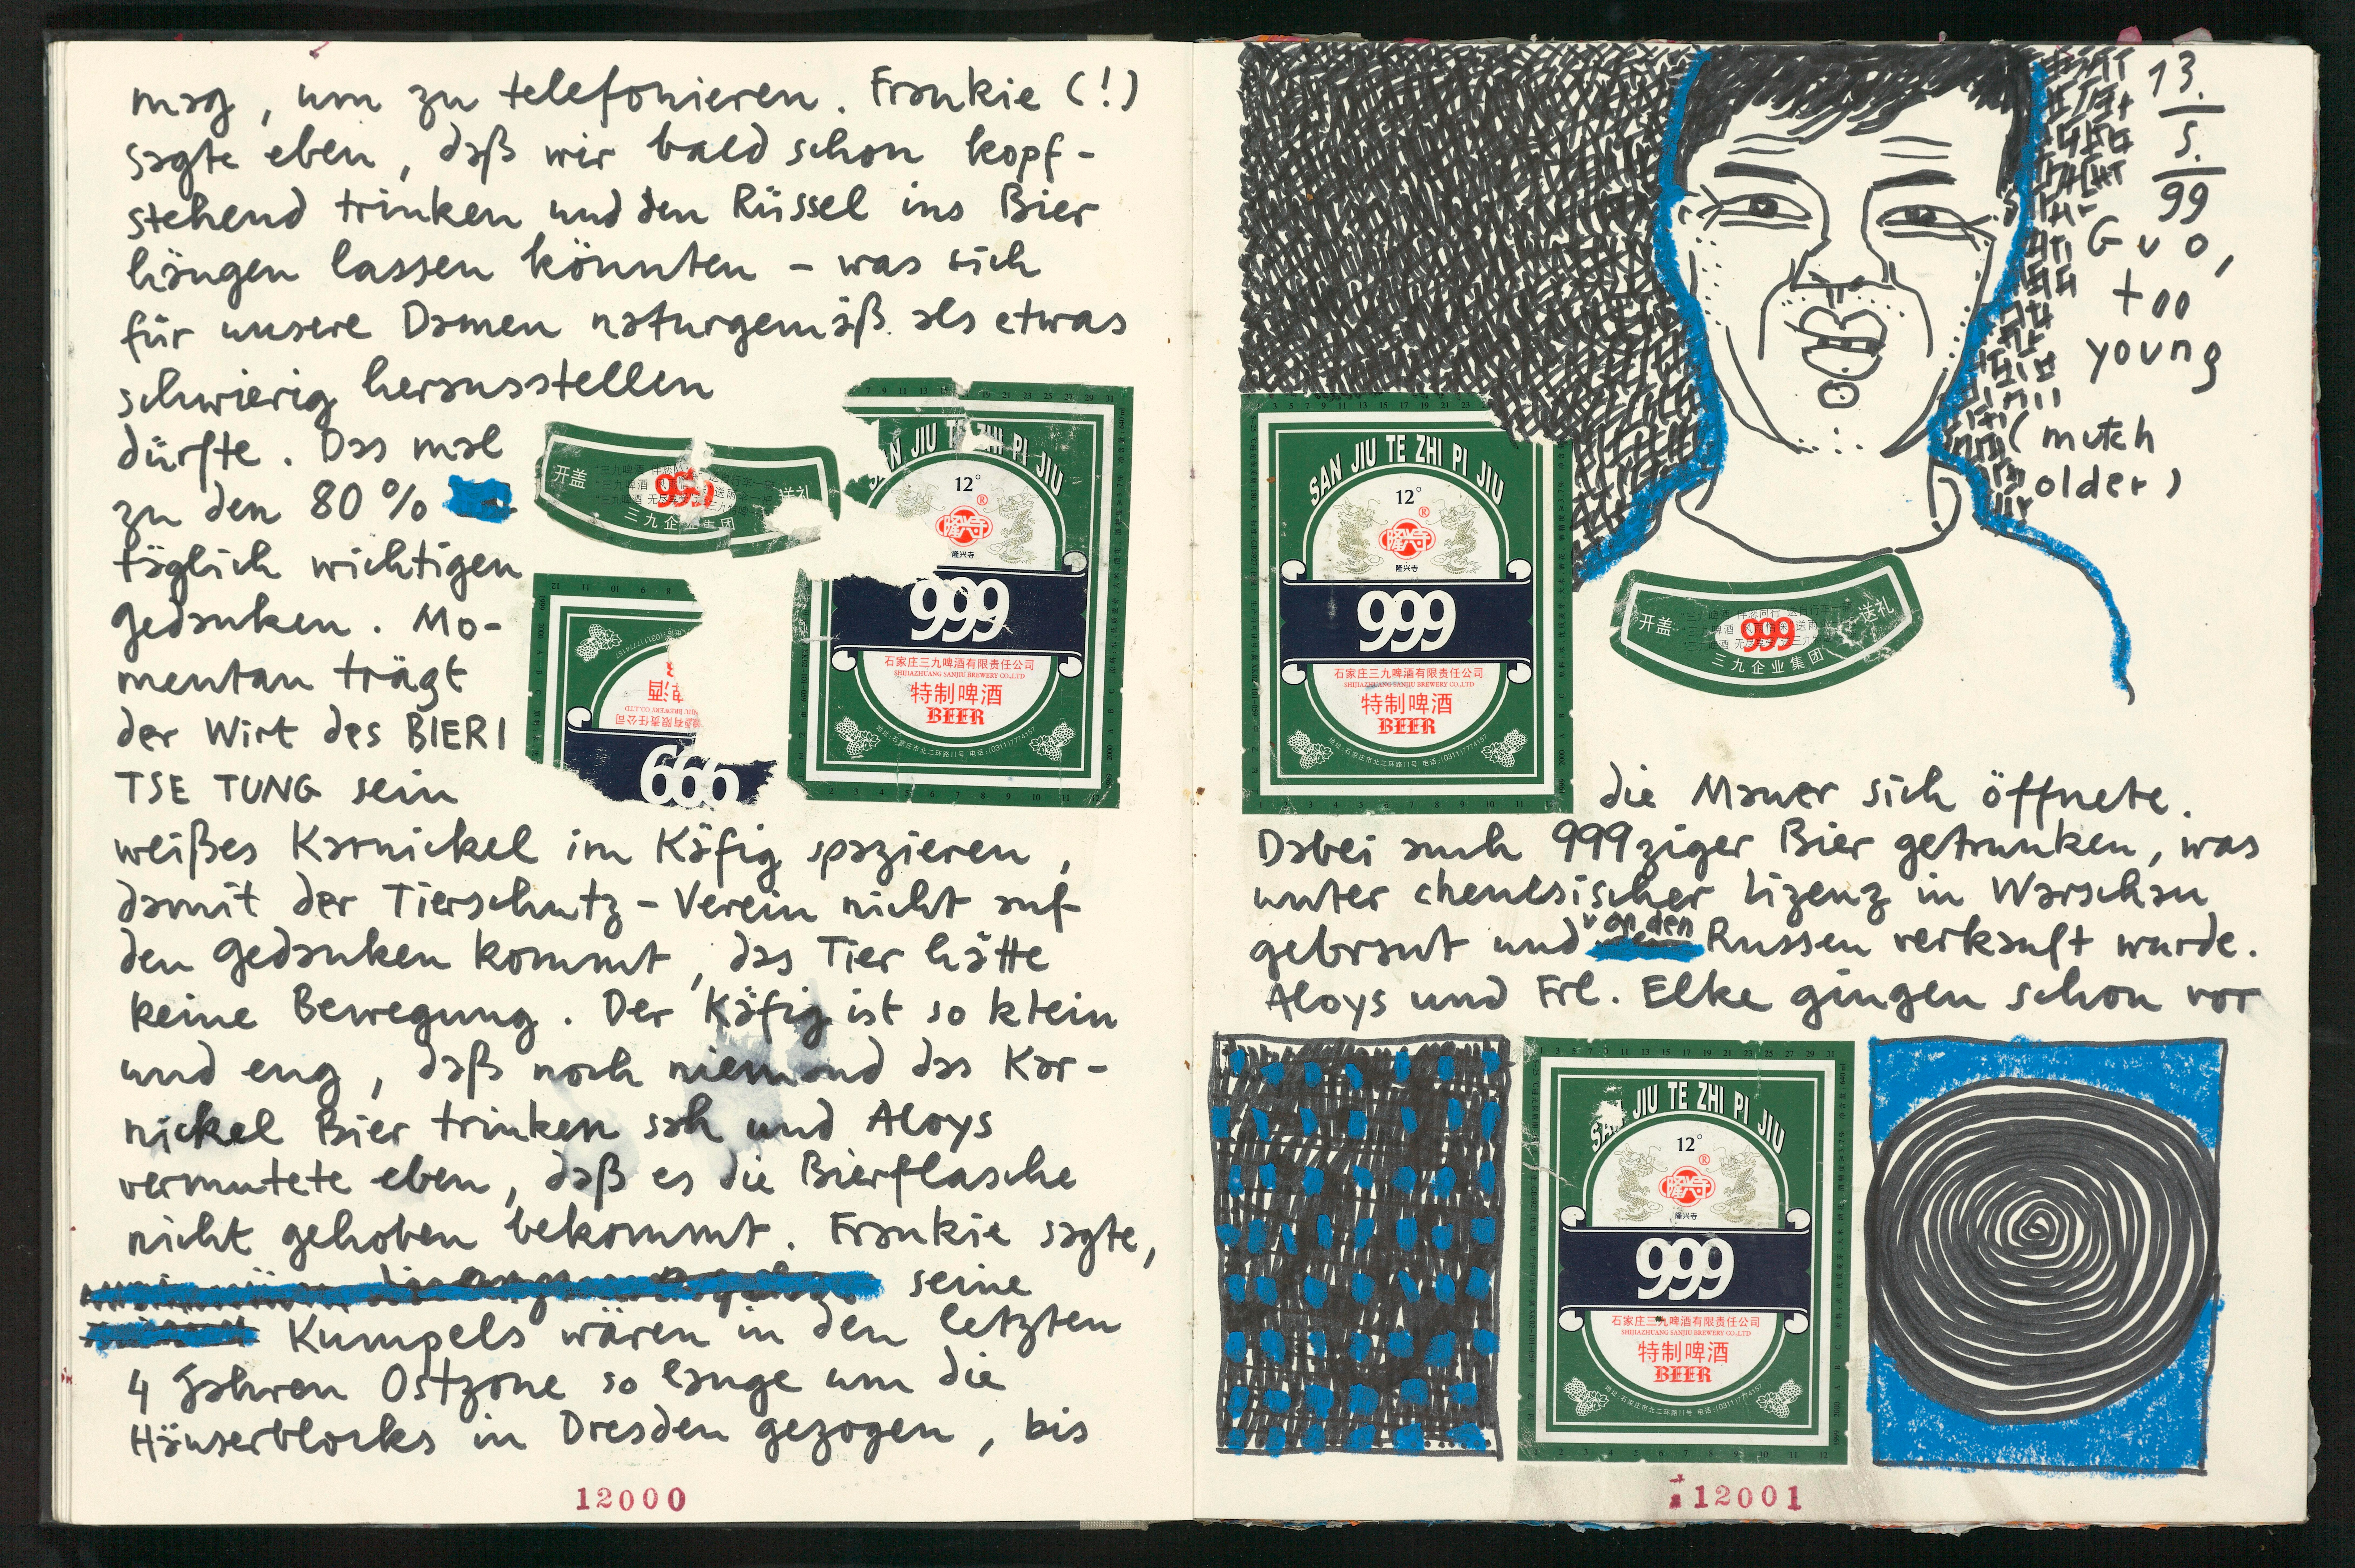 mag, um zu telefonieren. Frankie (!)
sagte eben, daß wir bald schon kopf-
stehend trinken und den Rüssel ins Bier
hängen lassen könnten – was sich
für unsere Damen naturgemäß als etwas
schwierig herausstellen
dürfte. Das mal
zu den 80%
täglich wichtigen
Gedanken. Mo-
mentan trägt
der Wirt des BIERI
TSE TUNG sein
weißes Karnickel im Käfig spazieren,
damit der Tierschutz-Verein nicht auf
den Gedanken kommt, das Tier hätte
keine Bewegung. Der Käfig ist so klein
und eng, daß noch niemand das Kar-
nickel Bier trinken sah und Aloys
vermutete eben, daß es die Bierflasche
nicht gehoben bekommt. Frankie sagte,
seine
Kumpels wären in den letzten
4 Jahren Ostzone so lange um die
Häuserblocks in Dresden gezogen, bis
12000
开盖
999
送礼
三九企业集团
SAN JIU TE ZHI PI JIU
12°
®
隆兴寺
隆兴寺
999
石家庄三九啤酒有限责任公司
SHIJIAZHUANG SANJIU BREWERY CO.,LTD
特制啤酒
BEER
666
13.
5.
99
Guo,
too
young
(mutch
older)
SAN JIU TE ZHI PI JIU
12°
®
隆兴寺
隆兴寺
999
石家庄三九啤酒有限责任公司
SHIJIAZHUANG SANJIU BREWERY CO.,LTD
特制啤酒
BEER
地址:石家庄市北二环路11号 电话:(0311)7774157
开盖
999
送礼
三九企业集团
die Mauer sich öffnete.
Dabei auch 999ziger Bier getrunken, was
unter chenesischer Lizenz in Warschau
gebraut und von den Russen verkauft wurde.
Aloys und Frl. Elke gingen schon vor
SAN JIU TE ZHI PI JIU
12°
®
隆兴寺
隆兴寺
999
石家庄三九啤酒有限责任公司
SHIJIAZHUANG SANJIU BREWERY CO.,LTD
特制啤酒
BEER
地址:石家庄市北二环路11号 电话:(0311)7774157
12001